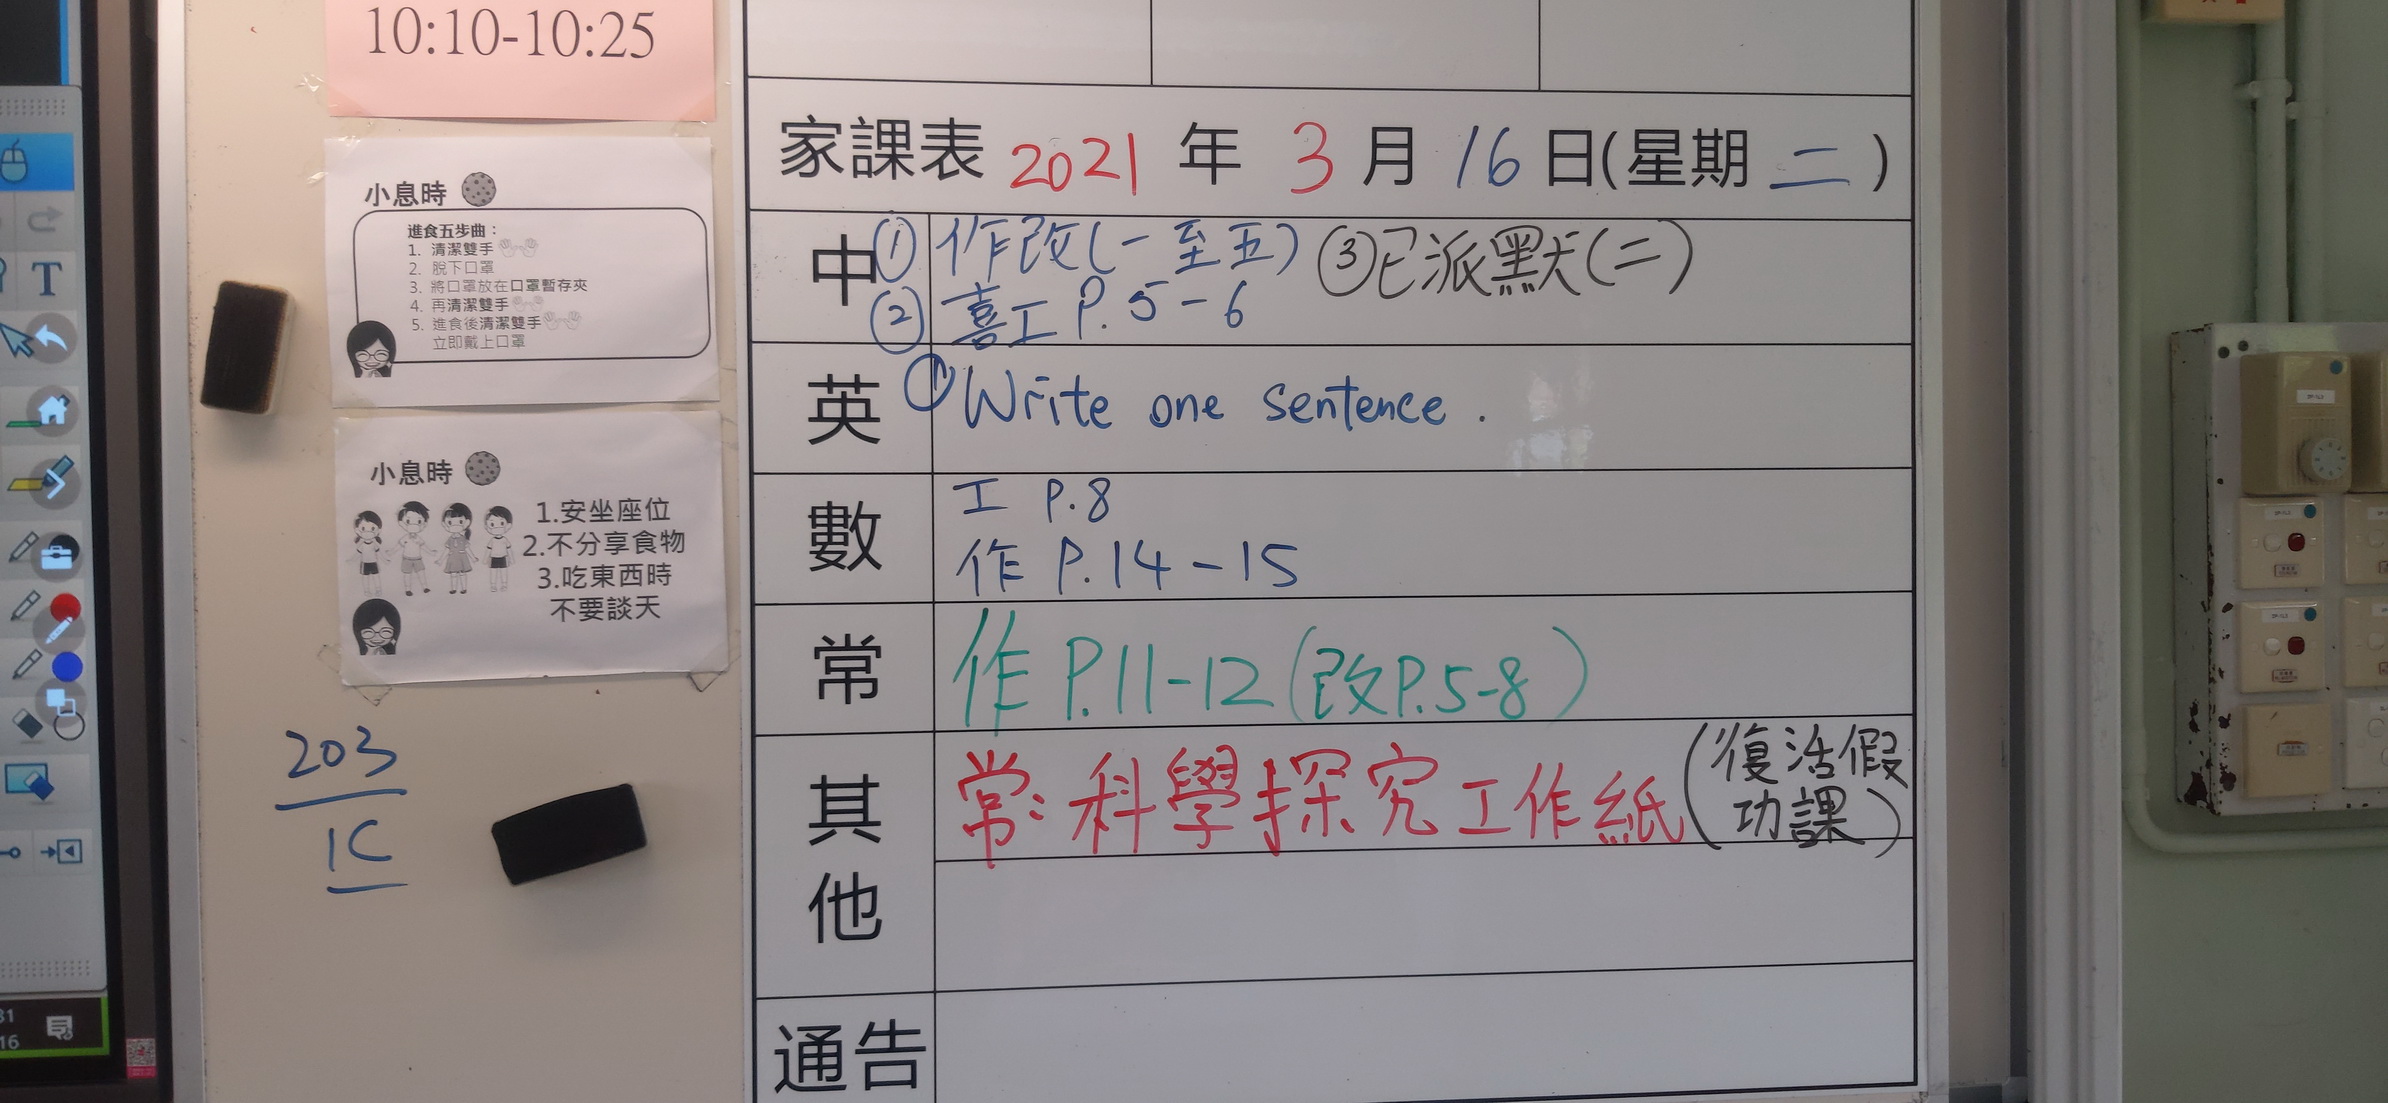 10:10-10:25
小息時
進食五步曲：
1. 清潔雙手
2. 脫下口罩
3. 將口罩放在口罩暫存夾
4. 再清潔雙手
5. 進食後清潔雙手
立即戴上口罩
小息時
1.安坐座位
2.不分享食物
3.吃東西時
不要談天
203
1C
家課表 2021 年 3 月 16 日(星期 二 )
中 ① 作改(一至五) ③已派默(二)
② 喜工 P. 5 - 6
英 ① Write one sentence .
數 工 P.8
作 P.14-15
常 作 P.11-12(改P.5-8)
其他 常: 科學探究工作紙(復活假功課)
通告
T